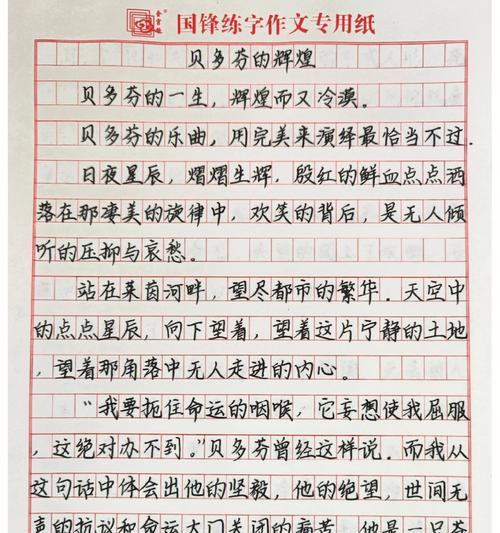 国锋练字作文专用纸
贝多芬的辉煌
贝多芬的一生，辉煌而又冷漠。
贝多芬的乐曲，用完美来演绎最恰当不过.
日夜星辰，熠熠生辉，殷红的鲜血点点洒
落在那凄美的旋律中，欢笑的背后，是无人倾
听的压抑与哀愁。
站在莱茵河畔，望尽都市的繁华。天空中
的点点星辰，向下望着，望着这片宁静的土地
，望着那角落中无人走进的内心。
“我要扼住命运的咽喉，它妄想使我屈服
，这绝对办不到。”贝多芬曾经这样说.而我从
这句话中体会出他的坚毅，他的绝望，世间无
声的抗议和命运大门关闭的痛苦。他是一只